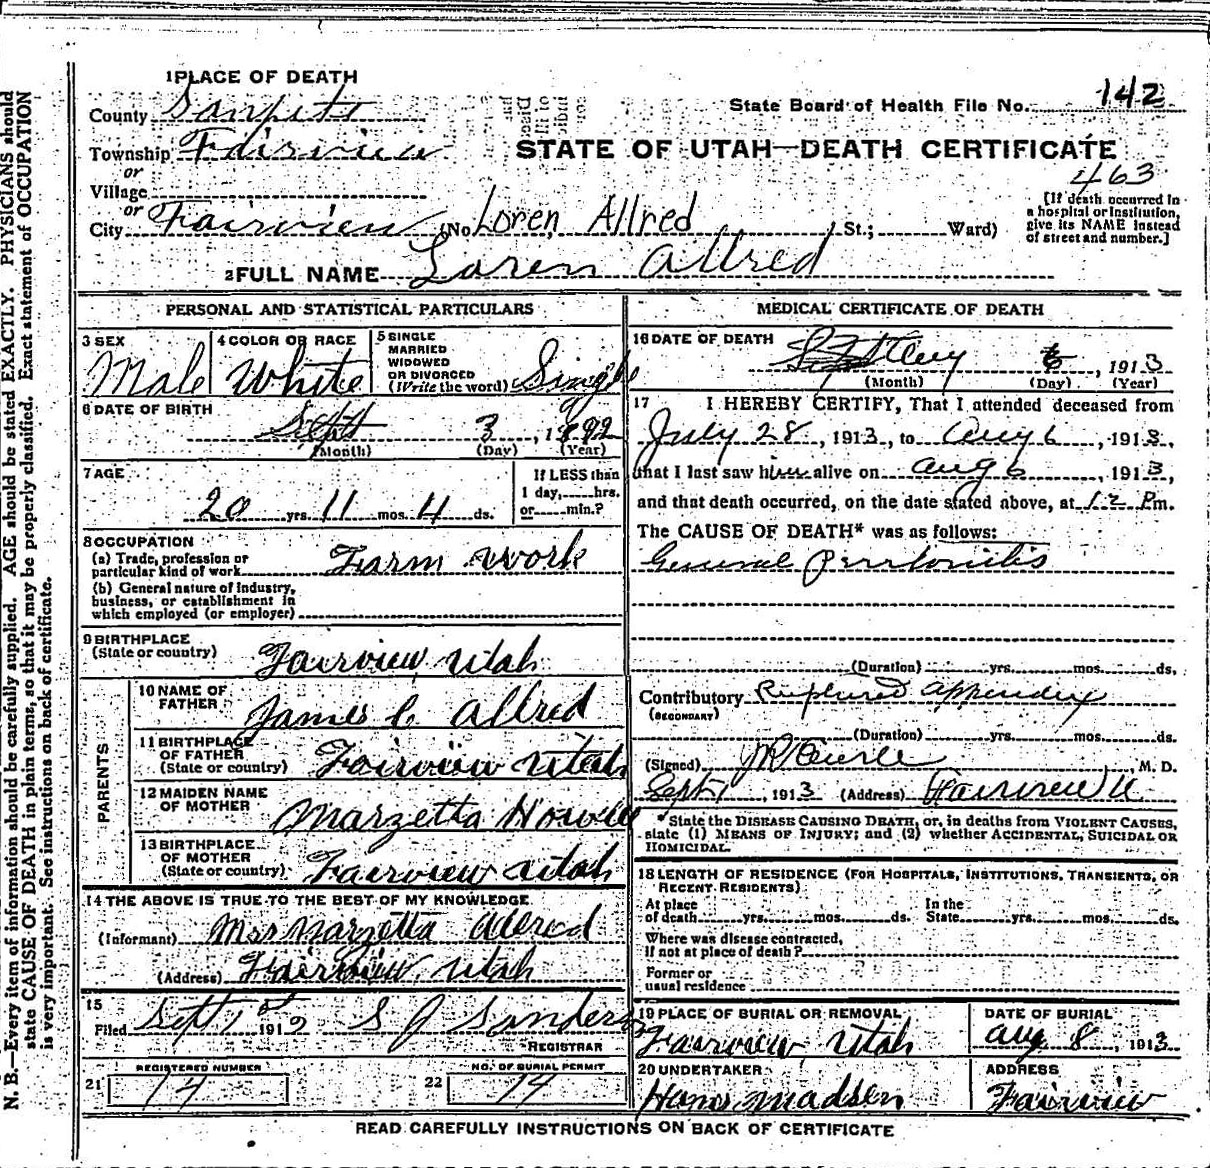 1 PLACE OF DEATH
County Sanpete
State Board of Health File No. 142
Township Fairview
STATE OF UTAH—DEATH CERTIFICATE
or
463
Village
[If death occurred in a hospital or institution, give its NAME instead of street and number.]
or
City Fairview (No. Loren Allred St.; Ward)
2 FULL NAME Loren Allred
PERSONAL AND STATISTICAL PARTICULARS
3 SEX
Male
4 COLOR OR RACE
White
5 SINGLE
MARRIED
WIDOWED
OR DIVORCED
(Write the word) Single
6 DATE OF BIRTH
Sept 3, 1892
(Month) (Day) (Year)
7 AGE
20 yrs. 11 mos. 4 ds.
If LESS than
1 day, hrs.
or min.?
8 OCCUPATION
(a) Trade, profession or
particular kind of work Farm work
(b) General nature of industry,
business, or establishment in
which employed (or employer)
9 BIRTHPLACE
(State or country) Fairview, Utah
PARENTS
10 NAME OF
FATHER James C. Allred
11 BIRTHPLACE
OF FATHER
(State or country) Fairview Utah
12 MAIDEN NAME
OF MOTHER Marzetta
13 BIRTHPLACE
OF MOTHER
(State or country) Fairview Utah
14 THE ABOVE IS TRUE TO THE BEST OF MY KNOWLEDGE
(Informant) Mrs Marzetta Allred
(Address) Fairview, Utah
15
Filed Sept 1st 191 S J Sanders
REGISTRAR
REGISTERED NUMBER
21 14
NO. OF BURIAL PERMIT
22 14
MEDICAL CERTIFICATE OF DEATH
16 DATE OF DEATH
6, 1913
(Month) (Day) (Year)
17 I HEREBY CERTIFY, That I attended deceased from
July 28, 1913, to Aug 6, 1913,
that I last saw him alive on Aug 6, 1913,
and that death occurred, on the date stated above, at 12 Pm.
The CAUSE OF DEATH* was as follows:
General Peritonitis
(Duration) yrs. mos. ds.
Contributory Ruptured appendix
(SECONDARY)
(Duration) yrs. mos. ds.
(Signed) M. D.
Sept 1, 1913 (Address) Fairview U
*State the DISEASE CAUSING DEATH, or, in deaths from VIOLENT CAUSES,
state (1) MEANS OF INJURY; and (2) whether ACCIDENTAL, SUICIDAL OR
HOMICIDAL.
18 LENGTH OF RESIDENCE (FOR HOSPITALS, INSTITUTIONS, TRANSIENTS, OR
RECENT RESIDENTS)
At place
of death yrs. mos. ds.
In the
State yrs. mos. ds.
Where was disease contracted,
if not at place of death?
Former or
usual residence
19 PLACE OF BURIAL OR REMOVAL
Fairview, Utah
DATE OF BURIAL
Aug 8, 1913
20 UNDERTAKER
Hans Madsen
ADDRESS
Fairview
READ CAREFULLY INSTRUCTIONS ON BACK OF CERTIFICATE
N. B.—Every item of information should be carefully supplied. AGE should be stated EXACTLY. PHYSICIANS should
state CAUSE OF DEATH in plain terms, so that it may be properly classified. Exact statement of OCCUPATION
is very important. See instructions on back of certificate.